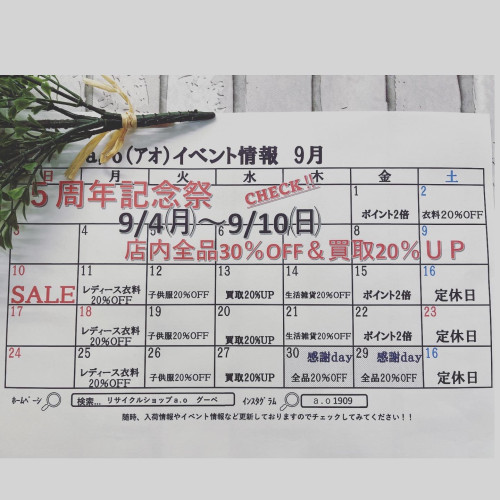 a.o(アオ)イベント情報 9月
日 月 火 水 木 金 土
5周年記念祭 CHECK!!
1 2
ポイント2倍 衣料20%OFF
9/4(月)〜9/10(日)
3 4 5 6 7 8 9
店内全品30%OFF&買取20%UP
10 11 12 13 14 15 16
SALE レディース衣料20%OFF 子供服20%OFF 買取20%UP 生活雑貨20%OFF ポイント2倍 定休日
17 18 19 20 21 22 23
レディース衣料20%OFF 子供服20%OFF 買取20%UP 生活雑貨20%OFF ポイント2倍 定休日
24 25 26 27 30 感謝day 29 感謝day 16
レディース衣料20%OFF 子供服20%OFF 買取20%UP 全品20%OFF 全品20%OFF 定休日
ホームページ 検索... リサイクルショップa.o グーペ インスタグラム a.o1909
随時、入荷情報やイベント情報など更新しておりますのでチェックしてみてください!!